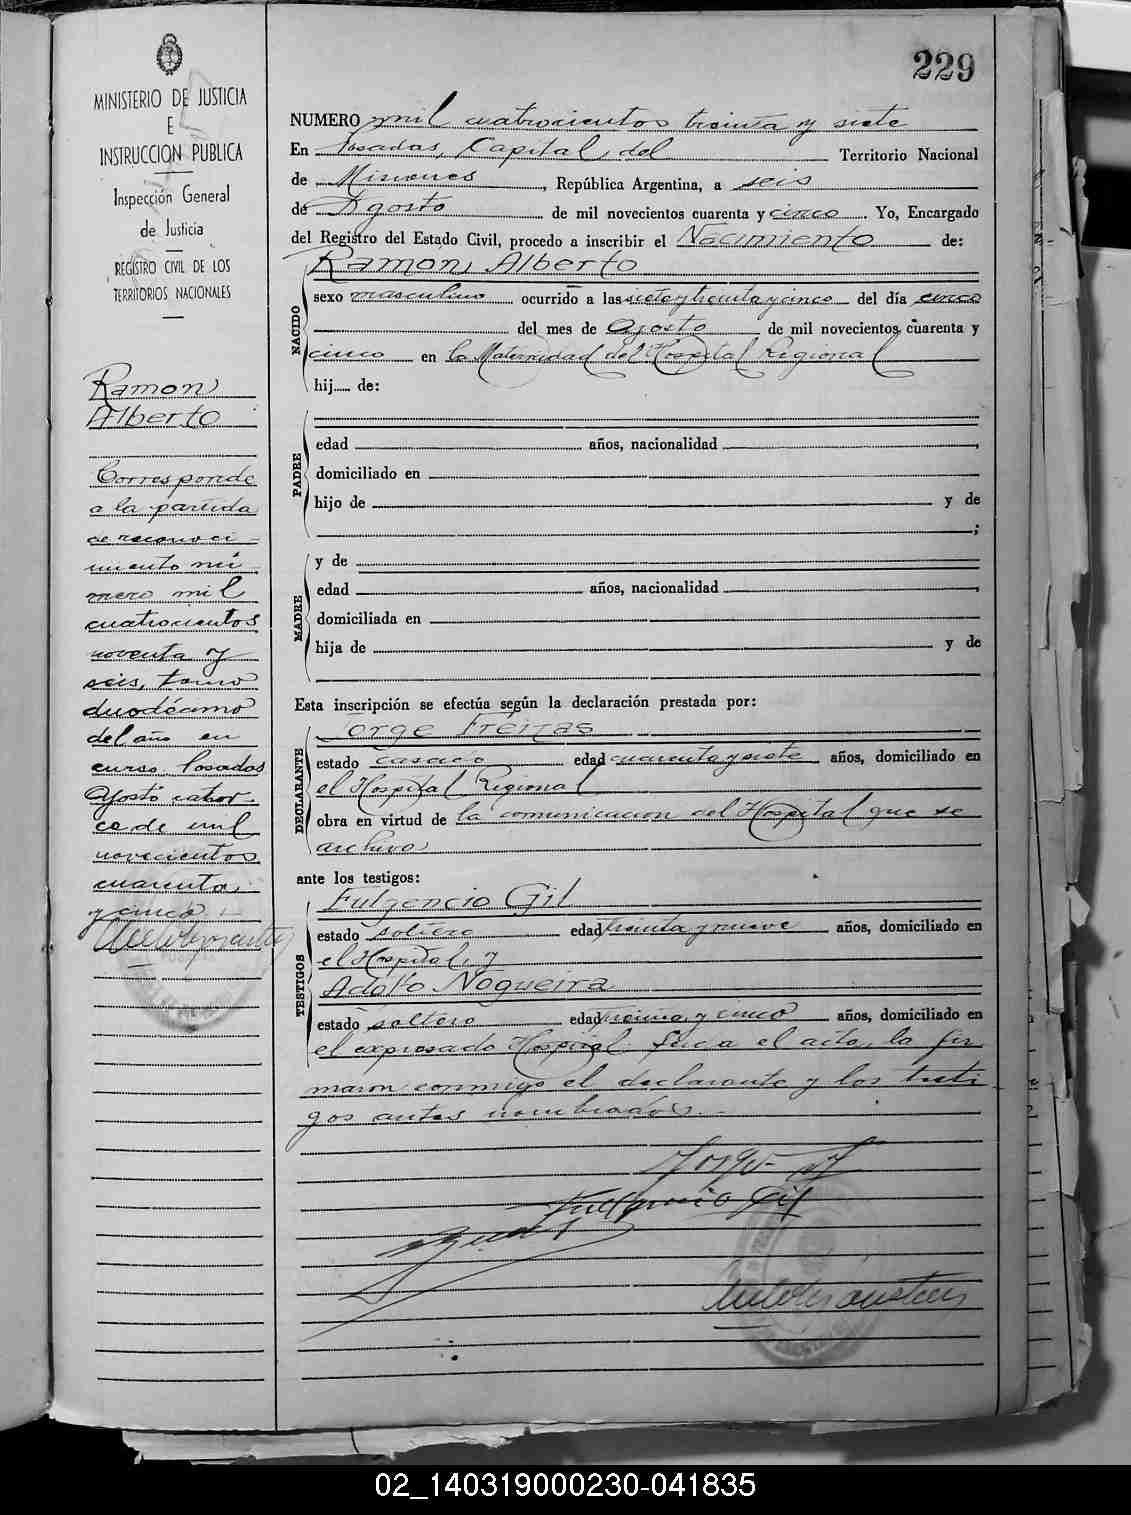 229
MINISTERIO DE JUSTICIA
E
INSTRUCCION PUBLICA
Inspección General
de Justicia
REGISTRO CIVIL DE LOS
TERRITORIOS NACIONALES
Ramon
Alberto
Corresponde
a la partida
de reconoci-
miento nú
mero mil
cuatrocientos
noventa y
seis, tomo
duodécimo
del año en
curso. Posadas
Agosto cator-
ce de mil
novecientos
cuarenta
y cinco
NUMERO mil cuatrocientos treinta y siete
En Posadas, Capital del Territorio Nacional
de Misiones, República Argentina, a seis
de Agosto de mil novecientos cuarenta y cinco. Yo, Encargado
del Registro del Estado Civil, procedo a inscribir el Nacimiento de:
NACIDO
Ramon Alberto
sexo masculino ocurrido a las siete y treinta y cinco del día cinco
del mes de Agosto de mil novecientos cuarenta y
cinco en la Maternidad del Hospital Regional
hij..... de:
PADRE
edad años, nacionalidad
domiciliado en
hijo de y de
;
MADRE
y de
edad años, nacionalidad
domiciliada en
hija de y de
Esta inscripción se efectúa según la declaración prestada por:
DECLARANTE
Jorge Freitas
estado casado edad cuarenta y siete años, domiciliado en
el Hospital Regional
obra en virtud de la comunicacion del Hospital que se
archiva
ante los testigos:
TESTIGOS
Fulgencio Gil
estado soltero edad treinta y nueve años, domiciliado en
el Hospital, y
Adolfo Nogueira
estado soltero edad treinta y cinco años, domiciliado en
el expresado Hospital. Leida el acta, la fir
maron conmigo el declarante y los testi
gos antes nombrados.-
Fulgencio Gil
02_140319000230-041835